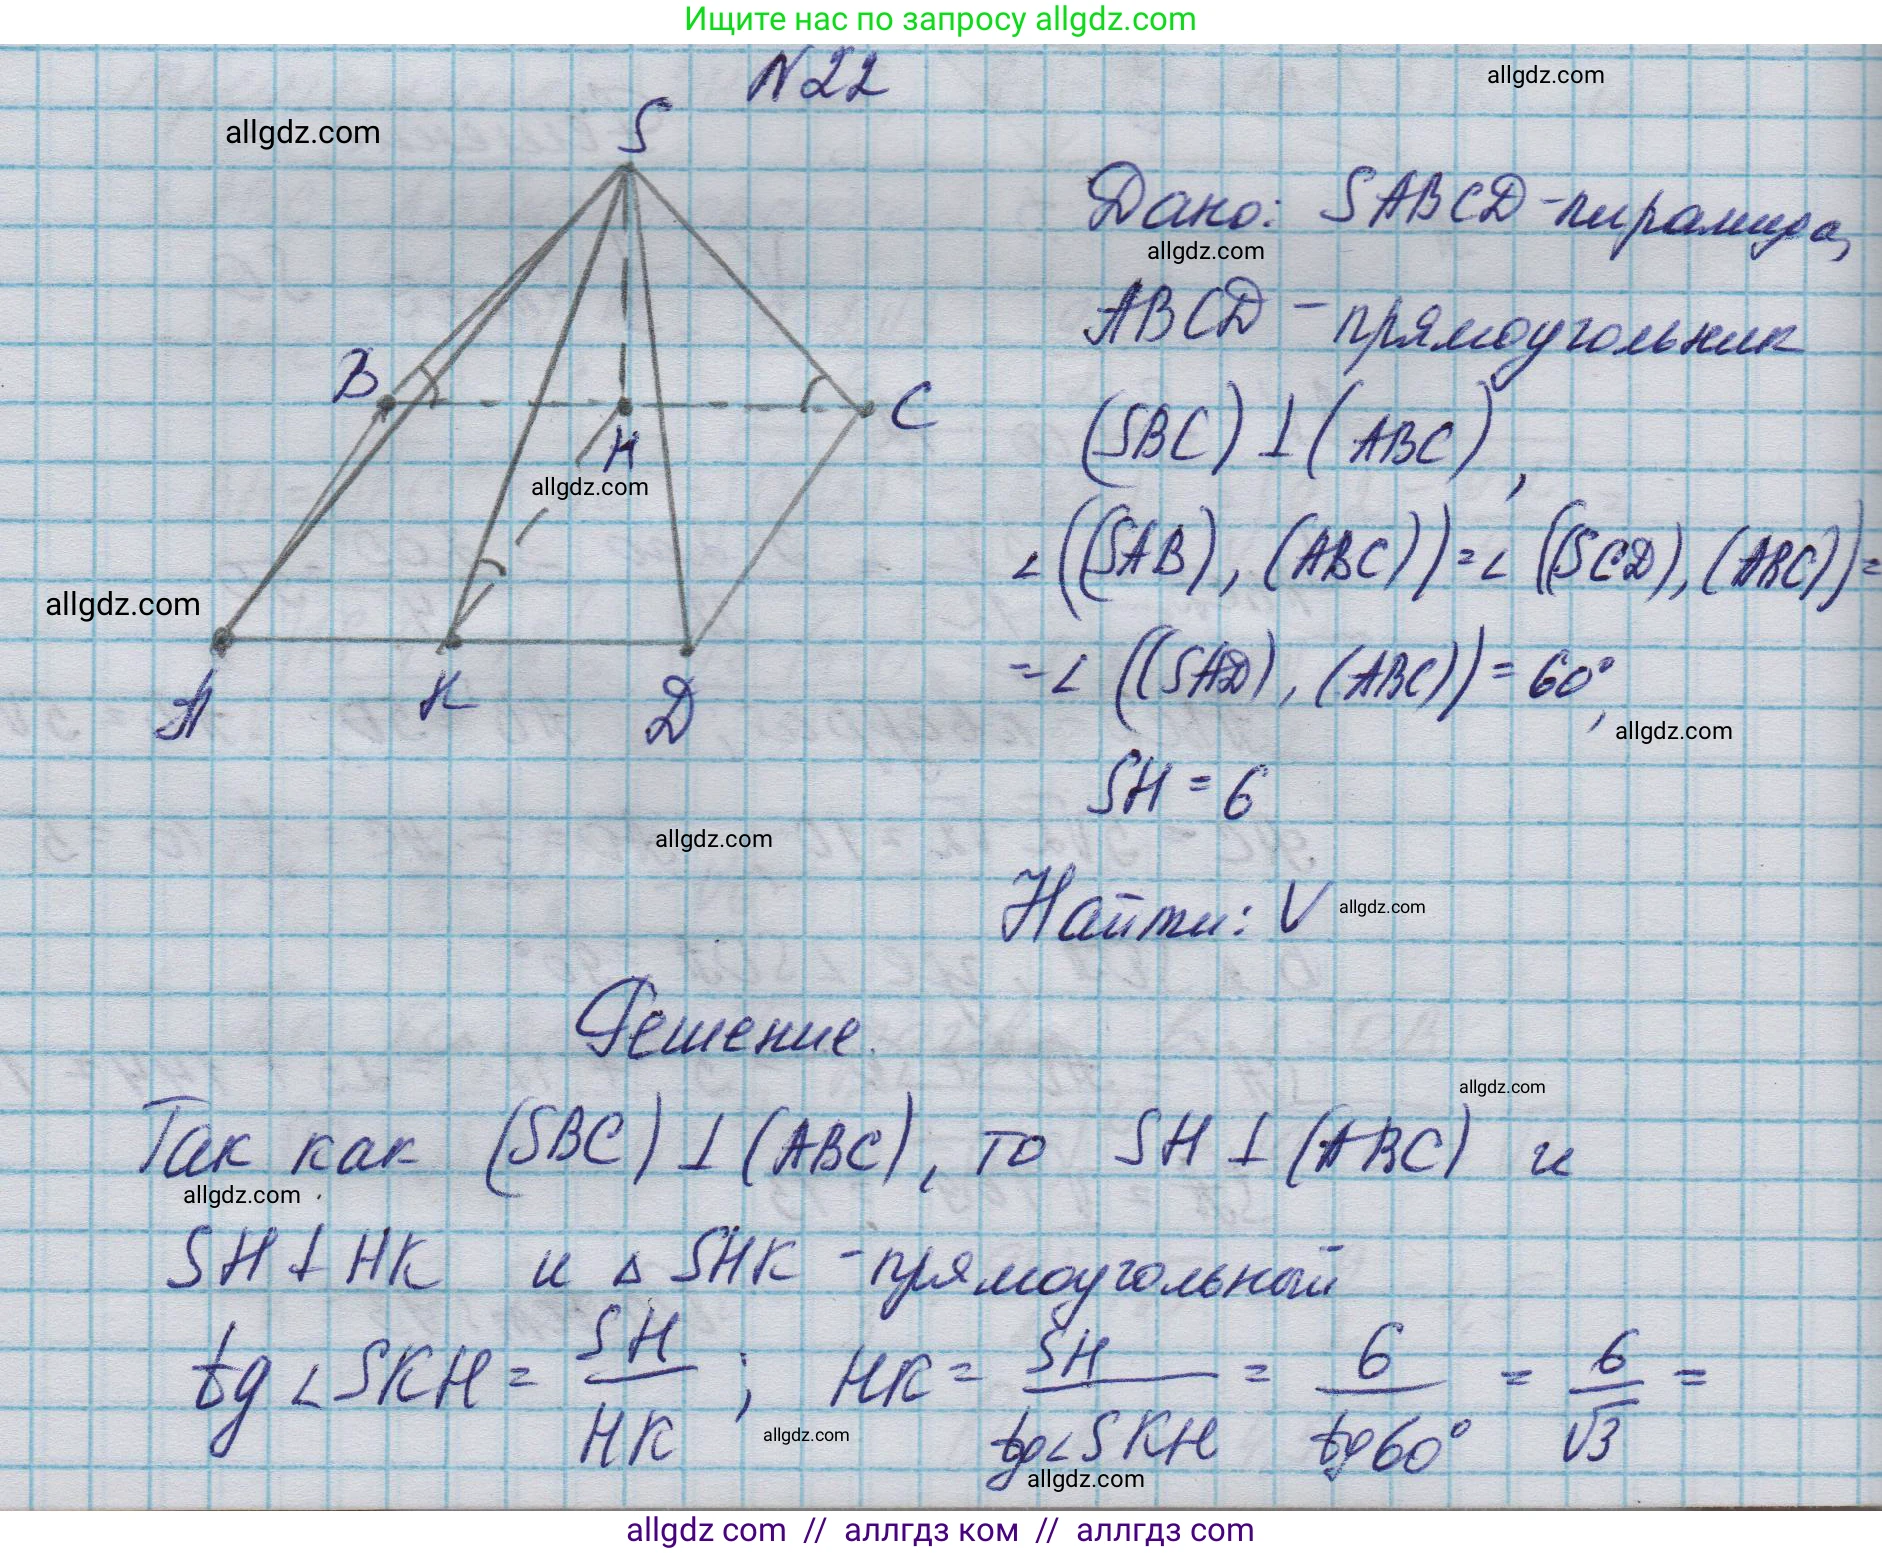 Ищите нас по запросу allgdz.com
N22
allgdz.com
allgdz.com
S
Дано: SABCD - пирамида,
allgdz.com
ABCD - прямоугольник
B
C
H
(SBC) ⊥ (ABC),
allgdz.com
∠((SAB), (ABC)) = ∠((SCD), (ABC)) =
allgdz.com
= ∠((SAD), (ABC)) = 60°,
A
K
D
allgdz.com
SH = 6
allgdz.com
Найти: V
allgdz.com
Решение.
allgdz.com
Так как (SBC) ⊥ (ABC), то SH ⊥ (ABC) и
allgdz.com
SH ⊥ HK и △ SHK - прямоугольный
tg ∠SKH = SH/HK ; HK = SH/tg∠SKH = 6/tg60° = 6/√3 =
allgdz.com
allgdz.com
allgdz com // аллгдз ком // аллгдз com